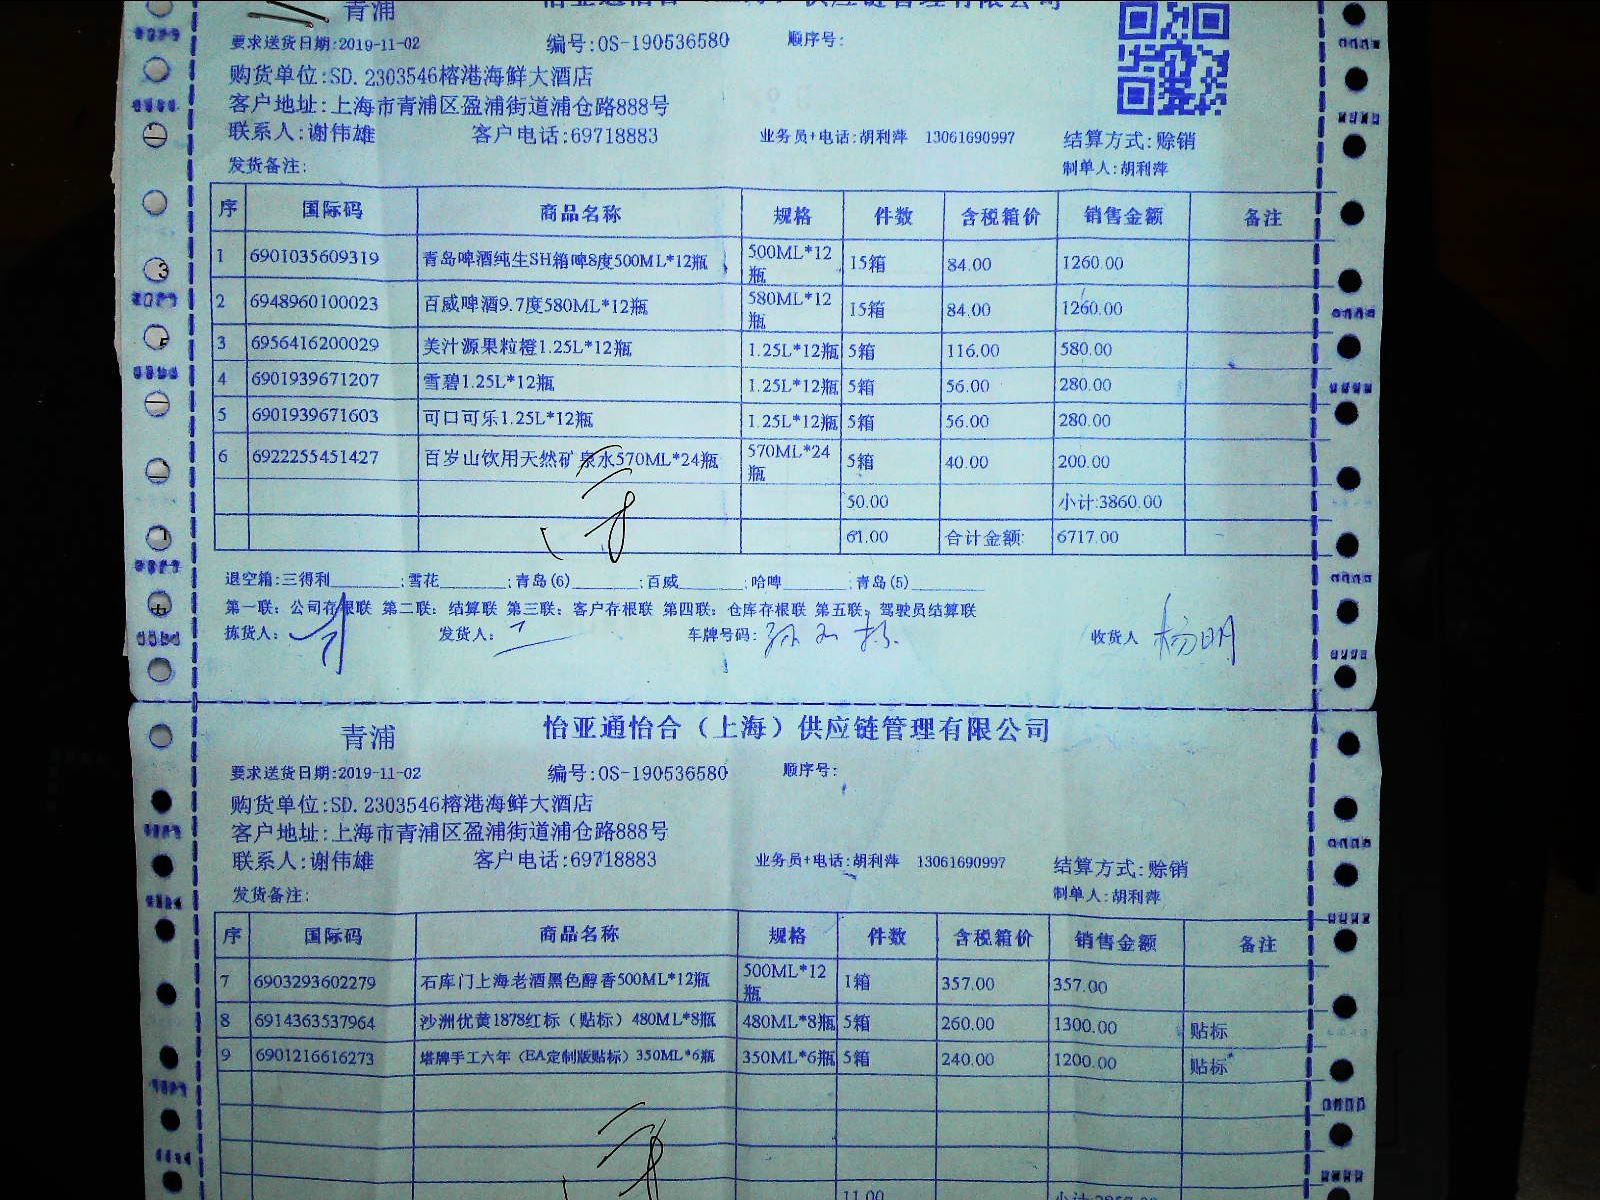 青浦 怡亚通怡合（上海）供应链管理有限公司
要求送货日期:2019-11-02 编号:OS-190536580 顺序号:
购货单位:SD.2303546榕港海鲜大酒店
客户地址:上海市青浦区盈浦街道浦仓路888号
联系人:谢伟雄 客户电话:69718883 业务员+电话:胡利萍 13061690997 结算方式:赊销
发货备注: 制单人:胡利萍
序 国际码 商品名称 规格 件数 含税箱价 销售金额 备注
1 6901035609319 青岛啤酒纯生SH箱啤8度500ML*12瓶 500ML*12瓶 15箱 84.00 1260.00
2 6948960100023 百威啤酒9.7度580ML*12瓶 580ML*12瓶 15箱 84.00 1260.00
3 6956416200029 美汁源果粒橙1.25L*12瓶 1.25L*12瓶 5箱 116.00 580.00
4 6901939671207 雪碧1.25L*12瓶 1.25L*12瓶 5箱 56.00 280.00
5 6901939671603 可口可乐1.25L*12瓶 1.25L*12瓶 5箱 56.00 280.00
6 6922255451427 百岁山饮用天然矿泉水570ML*24瓶 570ML*24瓶 5箱 40.00 200.00
50.00 小计:3860.00
61.00 合计金额: 6717.00
退空箱:三得利______;雪花______;青岛(6)______;百威______;哈啤______;青岛(5)______
第一联：公司存根联 第二联：结算联 第三联：客户存根联 第四联：仓库存根联 第五联：驾驶员结算联
拣货人: 发货人: 车牌号码: 收货人 杨明
青浦 怡亚通怡合（上海）供应链管理有限公司
要求送货日期:2019-11-02 编号:OS-190536580 顺序号:
购货单位:SD.2303546榕港海鲜大酒店
客户地址:上海市青浦区盈浦街道浦仓路888号
联系人:谢伟雄 客户电话:69718883 业务员+电话:胡利萍 13061690997 结算方式:赊销
发货备注: 制单人:胡利萍
序 国际码 商品名称 规格 件数 含税箱价 销售金额 备注
7 6903293602279 石库门上海老酒黑色醇香500ML*12瓶 500ML*12瓶 1箱 357.00 357.00
8 6914363537964 沙洲优黄1878红标（贴标）480ML*8瓶 480ML*8瓶 5箱 260.00 1300.00 贴标
9 6901216616273 塔牌手工六年（EA定制版贴标）350ML*6瓶 350ML*6瓶 5箱 240.00 1200.00 贴标
11.00 小计:2857.00